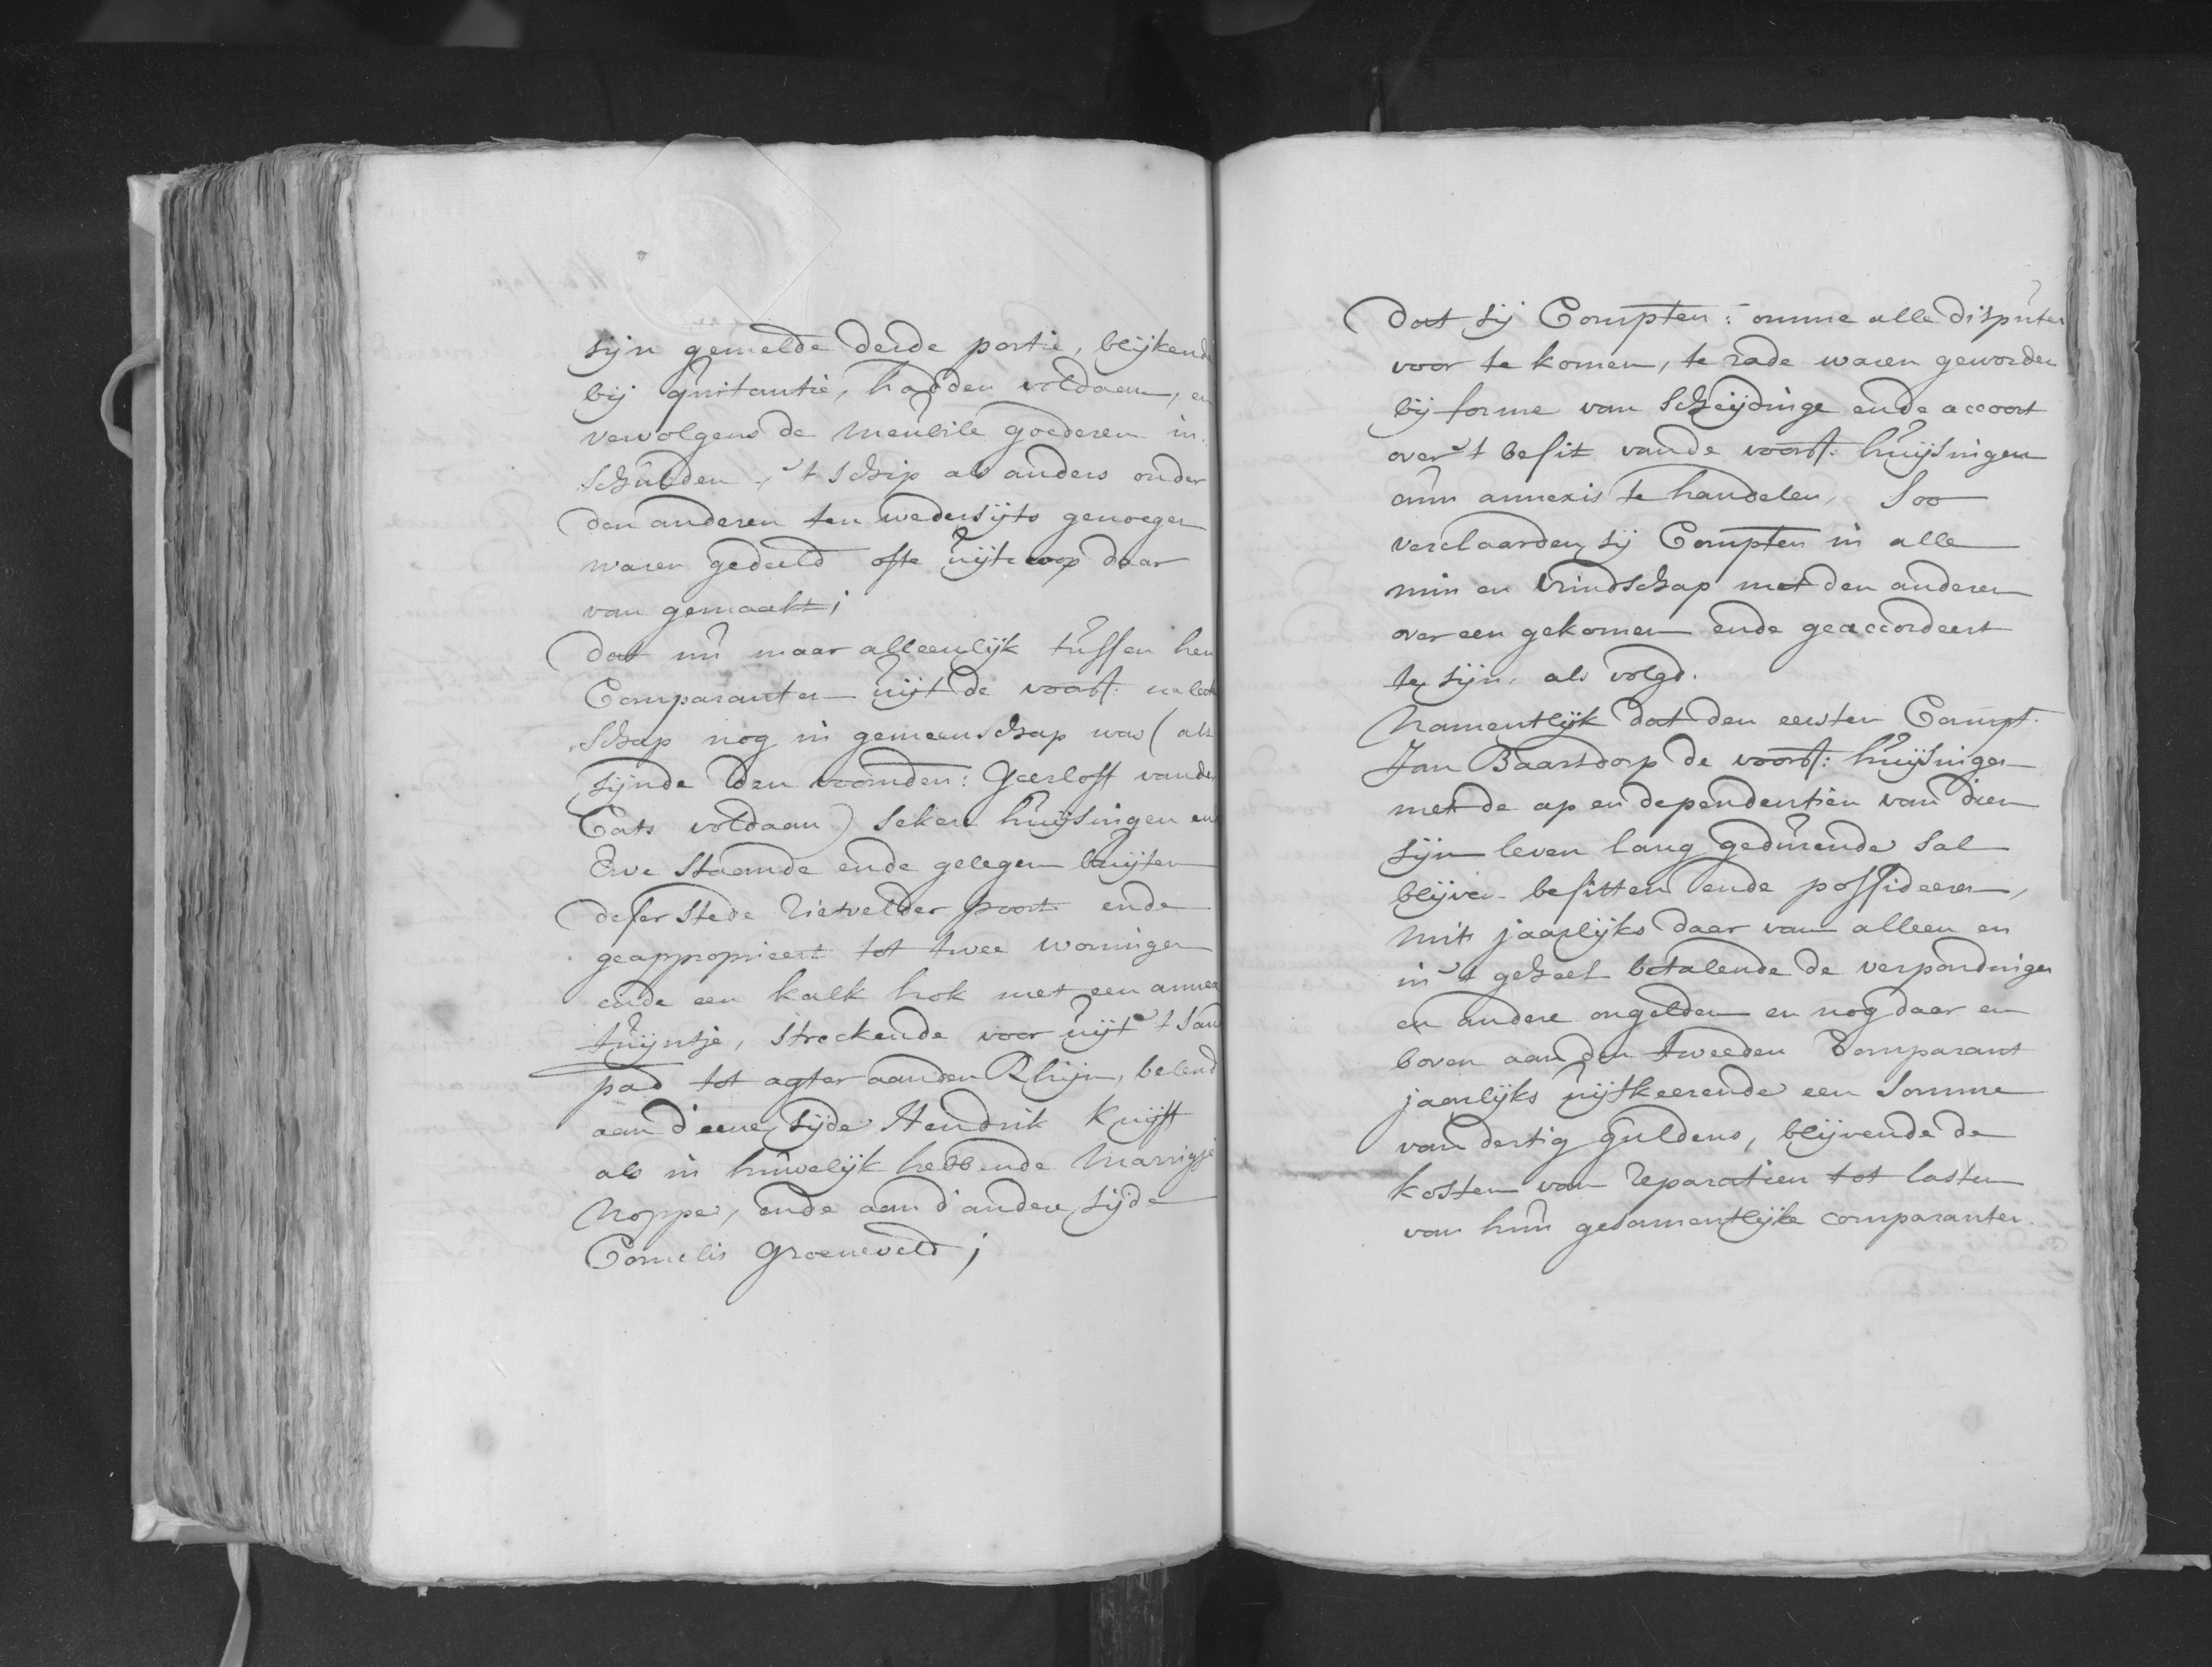 sijn gemelde derde portie, blijkend
bij quitantie, hadden voldaen, en
vervolgens de meubile goederen in
schulden, 't schip als anders onder
den anderen ten wedersijts genoegen
waren gedeeld ofte uijtcoop daar
van gemaakt;
Dat nu maar alleenlijk tussen hen
Comparanten uijt de voorsz: nalat
schap nog in gemeenschap was (als
sijnde den voornden: Geerloff vande
Cats voldaan) sekere huijsingen end
Erve staande ende gelegen buijten
deser stede Rietvelder poort ende
geapproprieert tot twee woningen
ende een kalk hok met een annex
tuijntje, streckende voor uijt 't San
pad tot agter aanden Rhijn, belend
aan d'eene sijde Hendrik Kruijff
als in huwelijk hebbende Marrigje
Noppe, ende aan d'andere sijde
Cornelis Groeneveld;
Dat sij Compten: omme alle disputen
voor te komen, te rade waren geworden
bij forme van scheijdinge ende accoort
over 't besit vande voorsz: huijsingen
cum annexis te handelen, Soo
verclaarden sij Compten in alle
min en vrindschap met den anderen
over een gekomen ende geaccordeert
te sijn, als volgd.
Namentlijk dat den eersten Compt.
Jan Baarsdorp de voorsz: huijsingen
met de ap en dependentiën van dien
sijn leven lang gedurende sal
blijven besitten ende possideeren,
mits jaarlijks daar van alleen en
in 't geheel betalende de verpondingen
en andere ongelden en nog daar en
boven aan den tweeden Comparant
jaarlijks uijtkeerende een somme
van dertig guldens, blijvende de
kosten van reparatien tot lasten
van hun gesamentlijke comparanten.